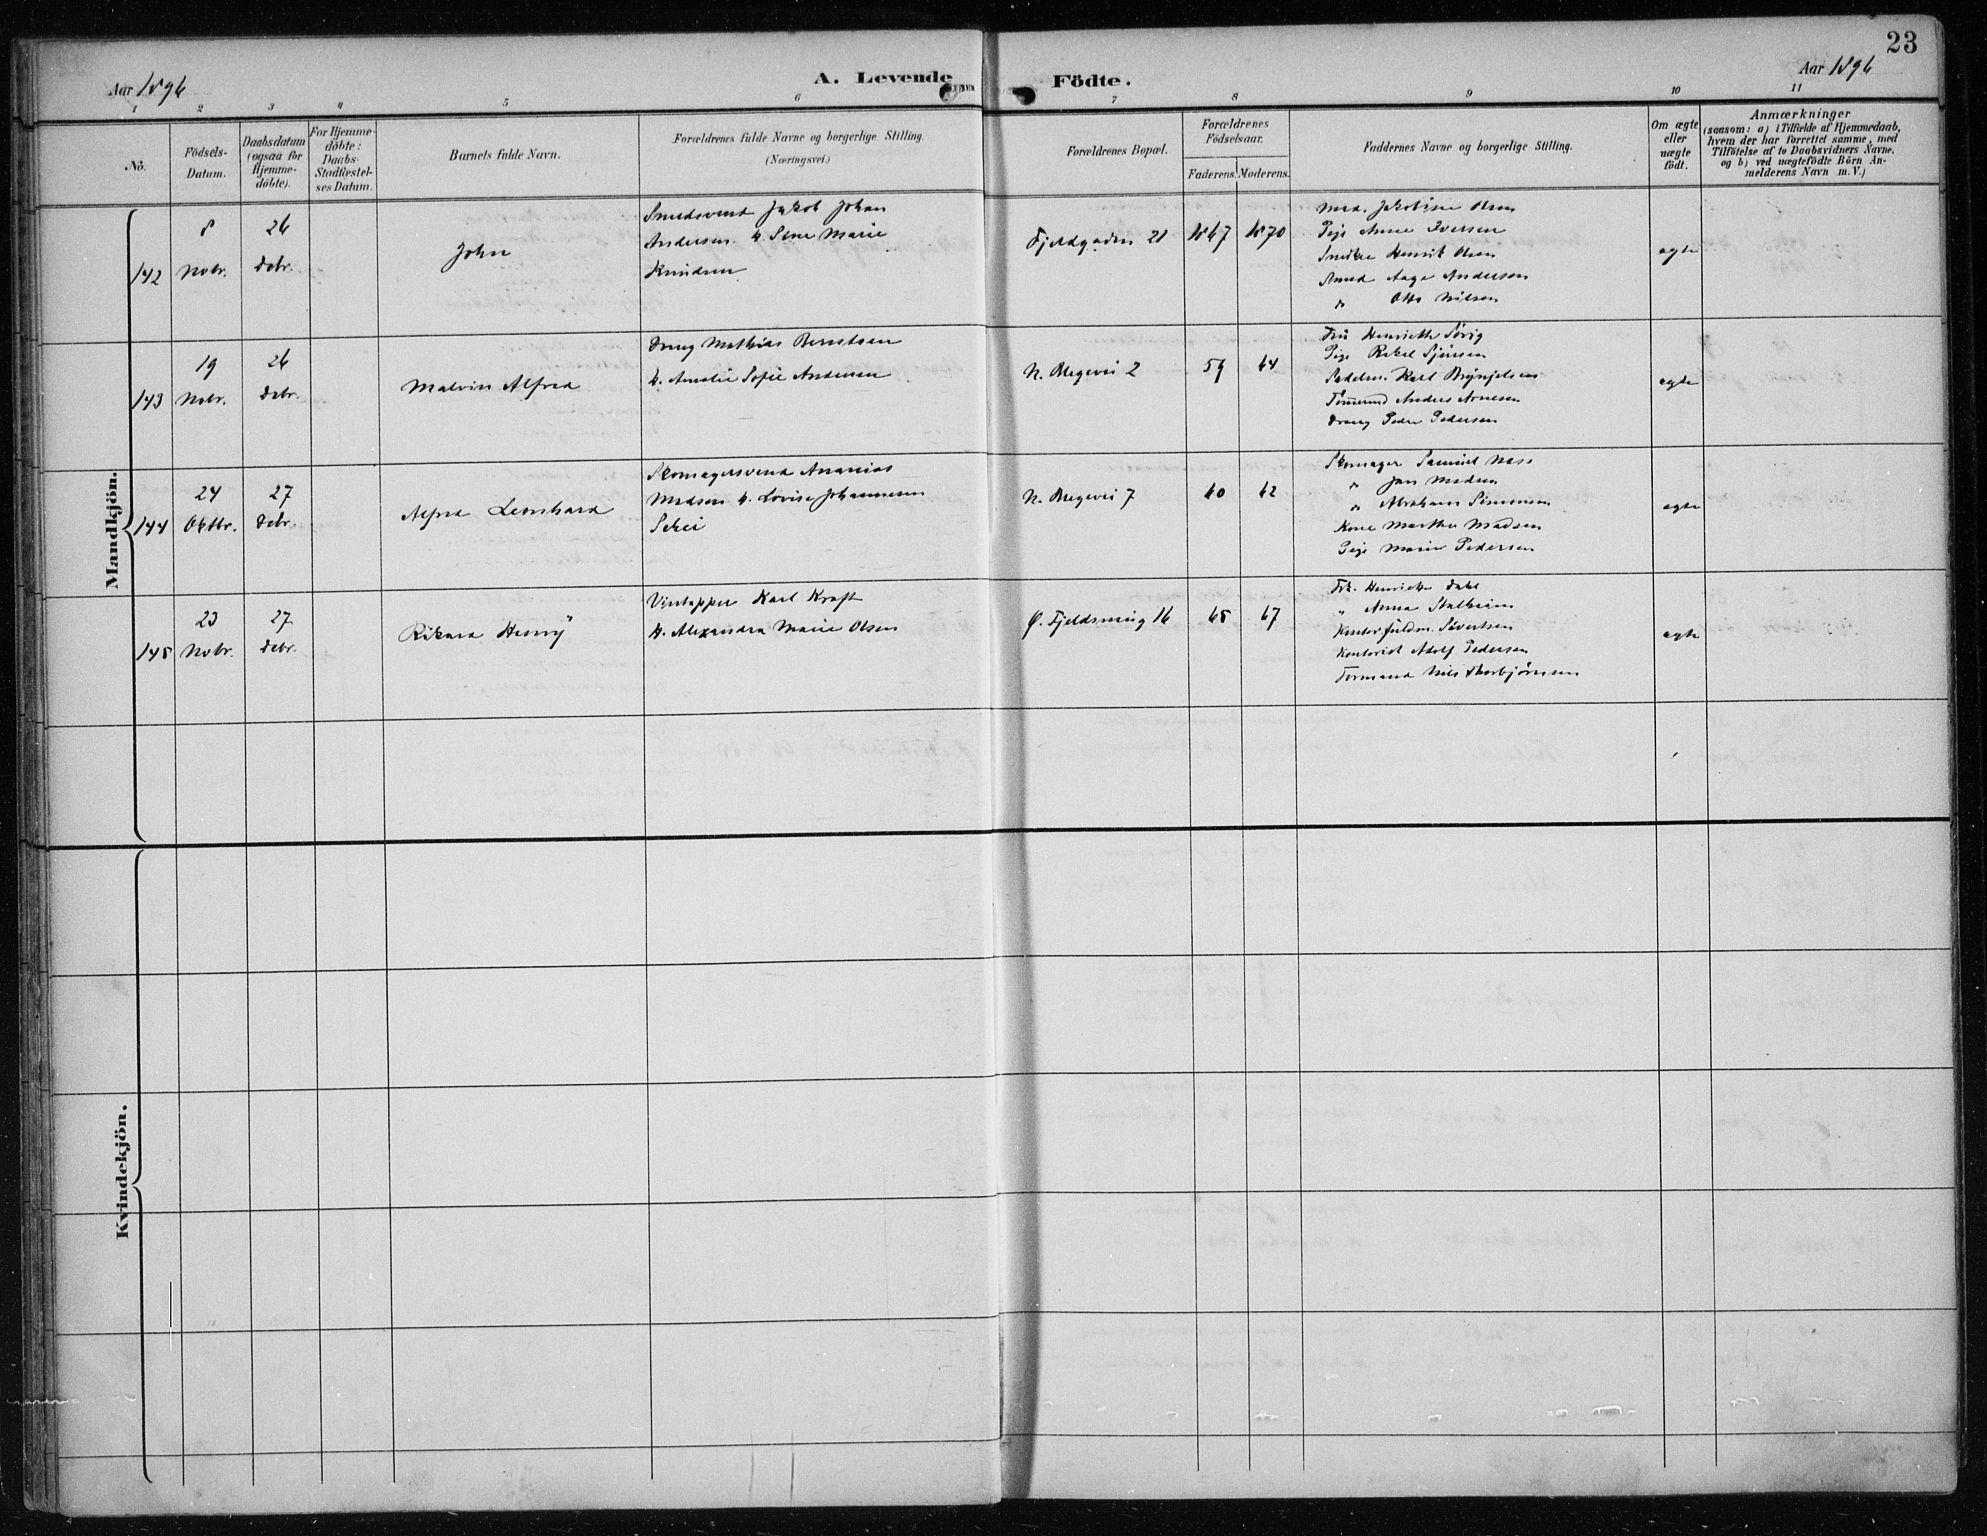 23
Aar 1896
A. Levende Födte.
Aar 1896
1 2 3 4 5 6 7 8 9 10 11
No.
Födsels-Datum.
Daabsdatum (ogsaa for Hjemme-döbte).
For Hjemme-döbte: Daabs-Stadfestel-ses Datum.
Barnets fulde Navn.
Forældrenes fulde Navne og borgerlige Stilling.
(Næringsvei.)
Forældrenes Bopæl.
Forældrenes Födselsaar.
Faderens. Moderens.
Faddernes Navne og borgerlige Stilling.
Om ægte eller uægte födt.
Anmærkninger
(saasom: a) i Tilfælde af Hjemmedaab,
hvem der har forrettet samme, med
Tilföielse af to Daabsvidners Navne,
og b) ved uægtefödte Börn An-
melderens Navn m.V.)
Mandkjön.
142
8 Novbr.
26 Debr.
John
Smedsvend Jakob Johan
Andersen h. Sine Marie
Knudsen
Fjeldgaden 21
1867 1870
Mad. Jakobine Olsen
Pige Anne Iversen
Snedker Henrik Olsen
Smed Aage Andersen
" Otto Nilsen
ægte
143
19 Novbr.
26 Debr.
Malvin Alfred
Dreng Mathias Berntsen
h. Amalie Sofie Andersen
N. Blegevei 2
59 64
Fru Henriette Sørig
Pige Rakel
Karl Brynjelsen
Tømmermd Anders Arnesen
Dreng Peder Pedersen
ægte
144
24 Oktbr.
27 Debr.
Alfred Leonhard
Skomagersvend Ananias
Madsen h. Lovise Johannesen
N. Blegevei 7
60 62
Skomager Samuel Næss
" Jan Madsen
" Abraham Simonsen
Kone Martha Madsen
Pige Marie Pedersen
ægte
145
23 Novbr.
27 Debr.
Rikard Henry
Vintapper Karl Kraft
h. Alexandra Marie Olsen
Ø. Fjeldsmug 16
65 67
Frk. Henrikke Dahl
" Anna Stalheim
Kontorfuldm. Sivertsen
Kontorist Adolf Pedersen
Formand Nils Thorbjørnsen
ægte
Kvindekjön.